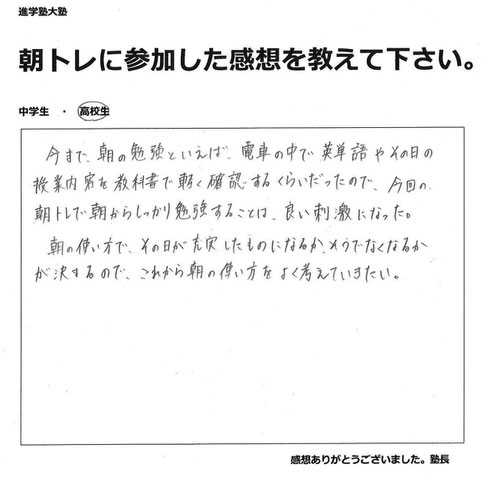 進学塾大塾
朝トレに参加した感想を教えて下さい。
中学生 ・ 高校生
今まで、朝の勉強といえば、電車の中で英単語やその日の
授業内容を教科書で軽く確認するくらいだったので、今回の
朝トレで朝からしっかり勉強することは、良い刺激になった。
朝の使い方で、その日が充実したものになるか、そうでなくなるか
が決まるので、これから朝の使い方をよく考えていきたい。
感想ありがとうございました。塾長